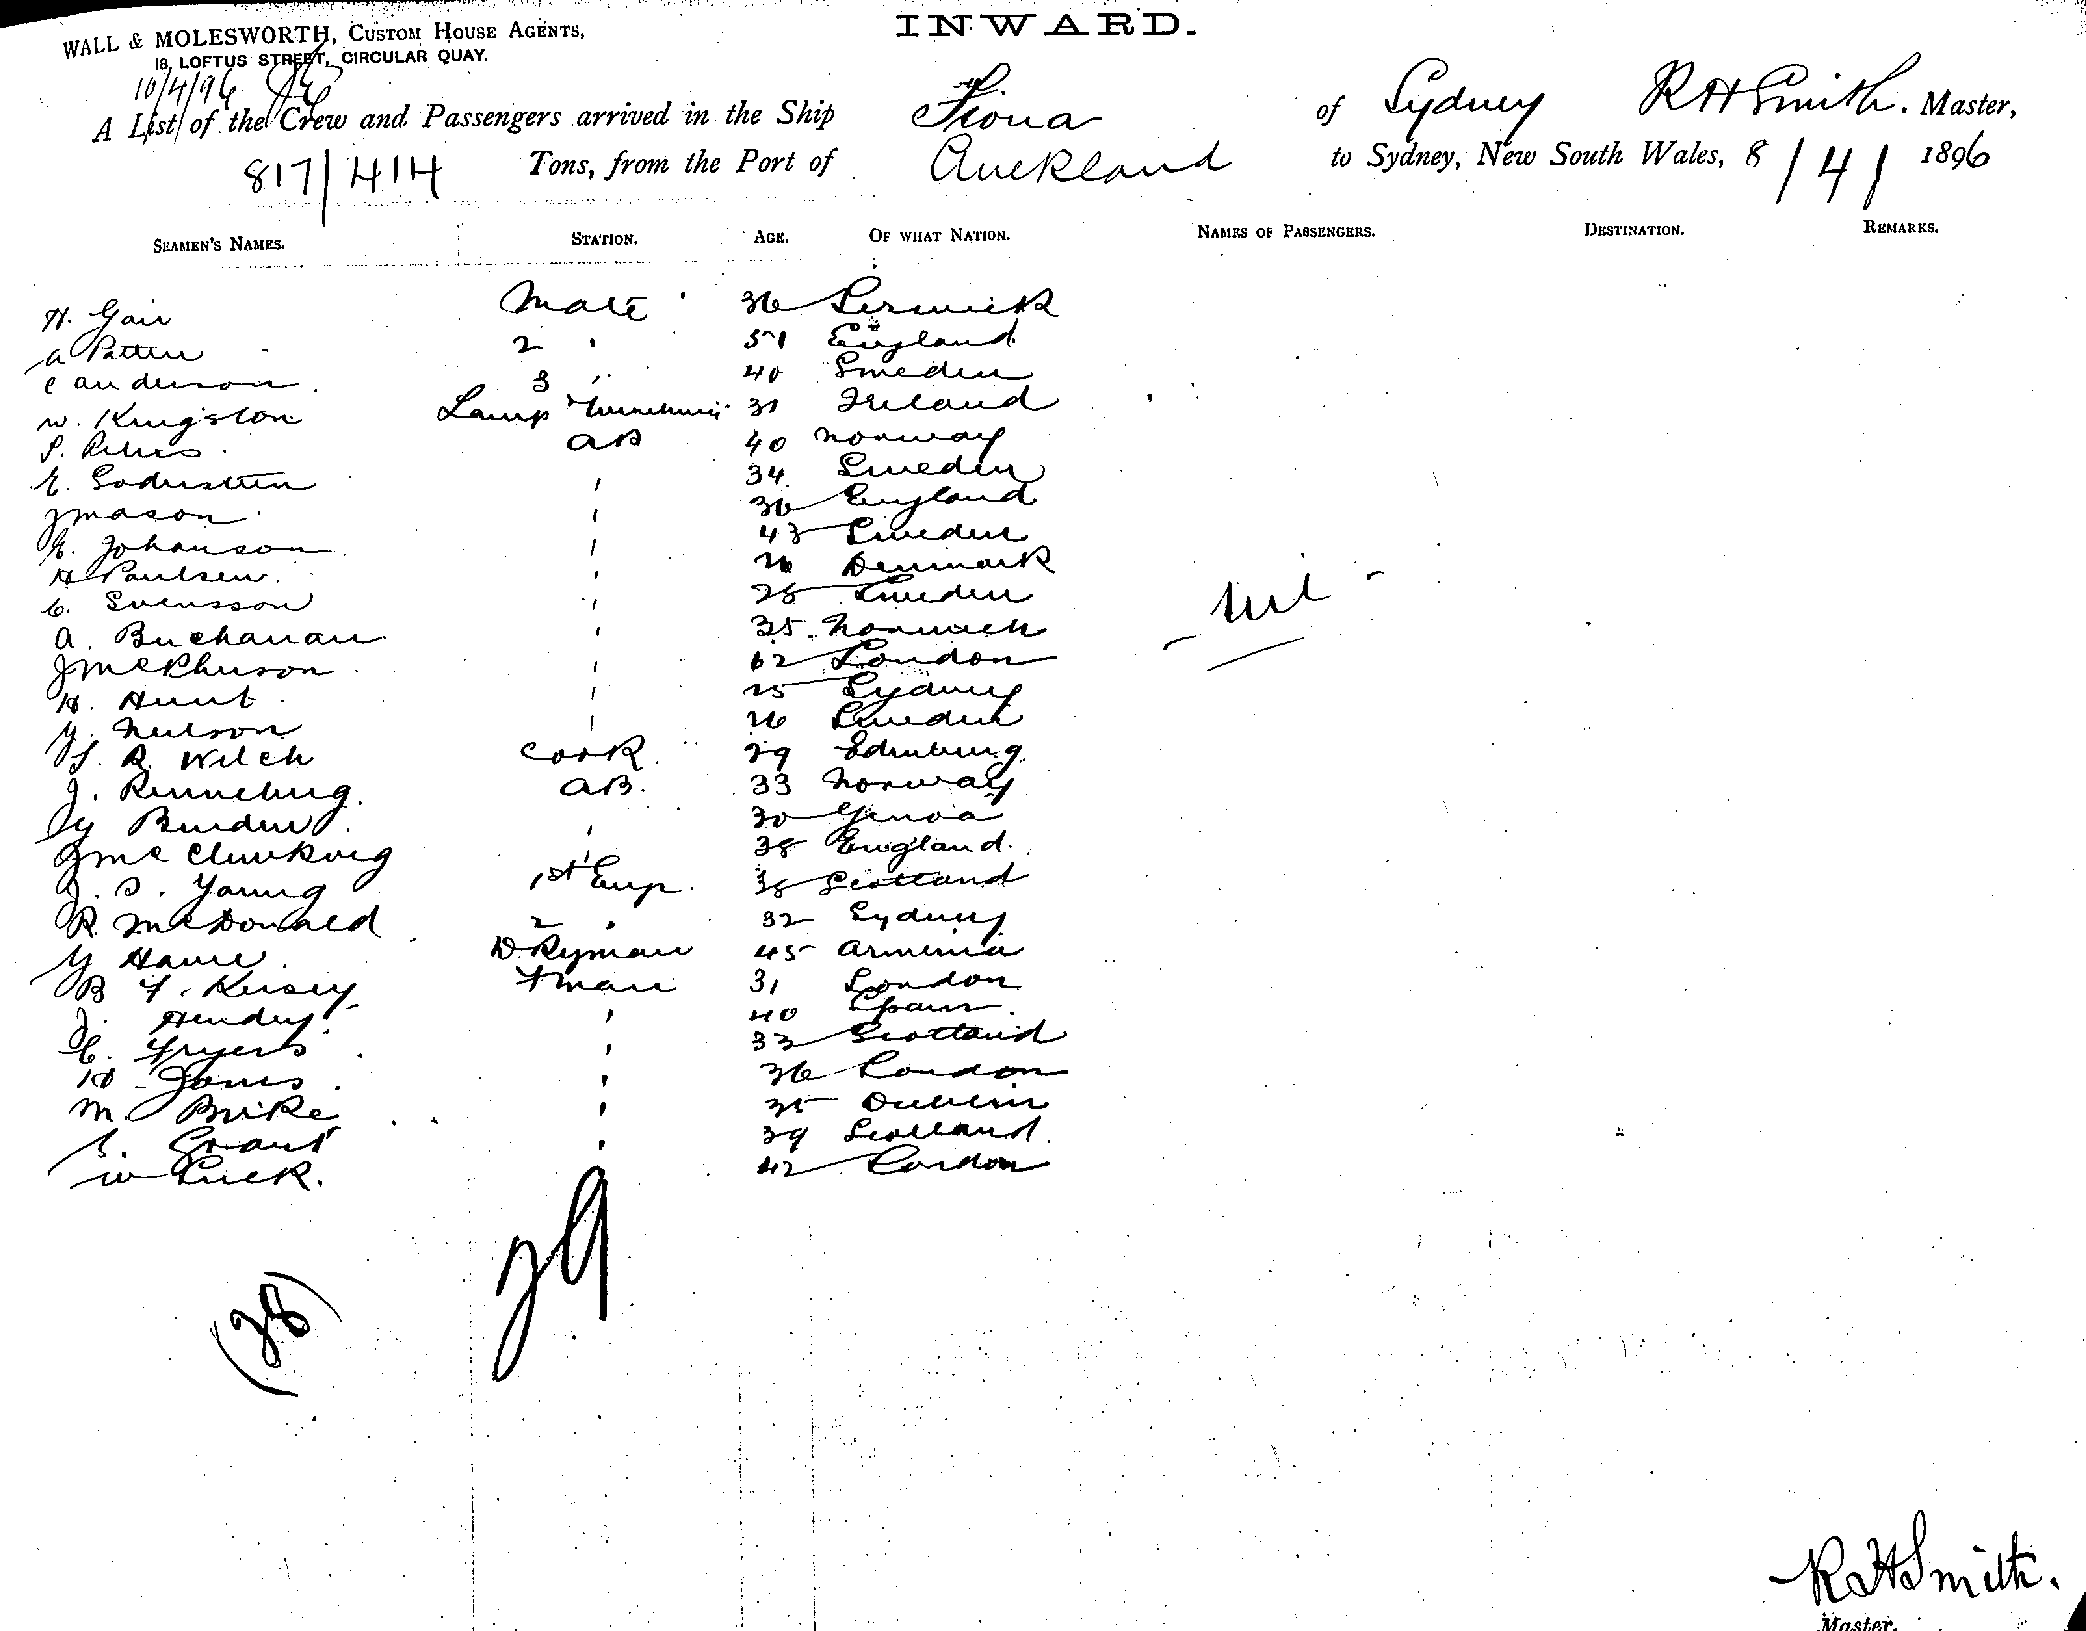 INWARD.
WALL & MOLESWORTH, CUSTOM HOUSE AGENTS,
18, LOFTUS STREET, CIRCULAR QUAY.
10/4/96
A List of the Crew and Passengers arrived in the Ship Fiona of Sydney R H Smith. Master,
817/414 Tons, from the Port of Auckland to Sydney, New South Wales, 8/4/1896
SEAMEN'S NAMES. STATION. AGE. OF WHAT NATION. NAMES OF PASSENGERS. DESTINATION. REMARKS.
H. Gair Mate 36 Lerwick
A Patten 2 " 51 England
C Anderson 3 " 40 Sweden
W. Kingston Lamp 31 Ireland
S. Peters AB 40 Norway
E. Soderstein " 34 Sweden
J Mason " 36 England
E. Johanson " 43 Sweden
H Paulsen " 26 Denmark
C. Svensson " 28 Sweden
A. Buchanan " 35 Norwich
J McPherson " 62 London
H. Hunt " 25 Sydney
G. Neilson " 26 Sweden
S. R. Welch Cook 29 Edinburg
J. Renneburg AB. 33 Norway
G " 30 Genoa
J Mc " 38 England
J. S. Young 1st Eng. 38 Scotland
R McDonald 2 " 32 Sydney
G Hame DKyman 45 Armenia
B F. Kersey Fman 31 London
J. Hendry " 40 Spain
C. Fryers " 33 Scotland
H Jones " 36 London
M. Brike " 35 Dublin
E. Grant " 39 Scotland
W Luck. 42 London
Nil
29
(38)
R H Smith.
Master.